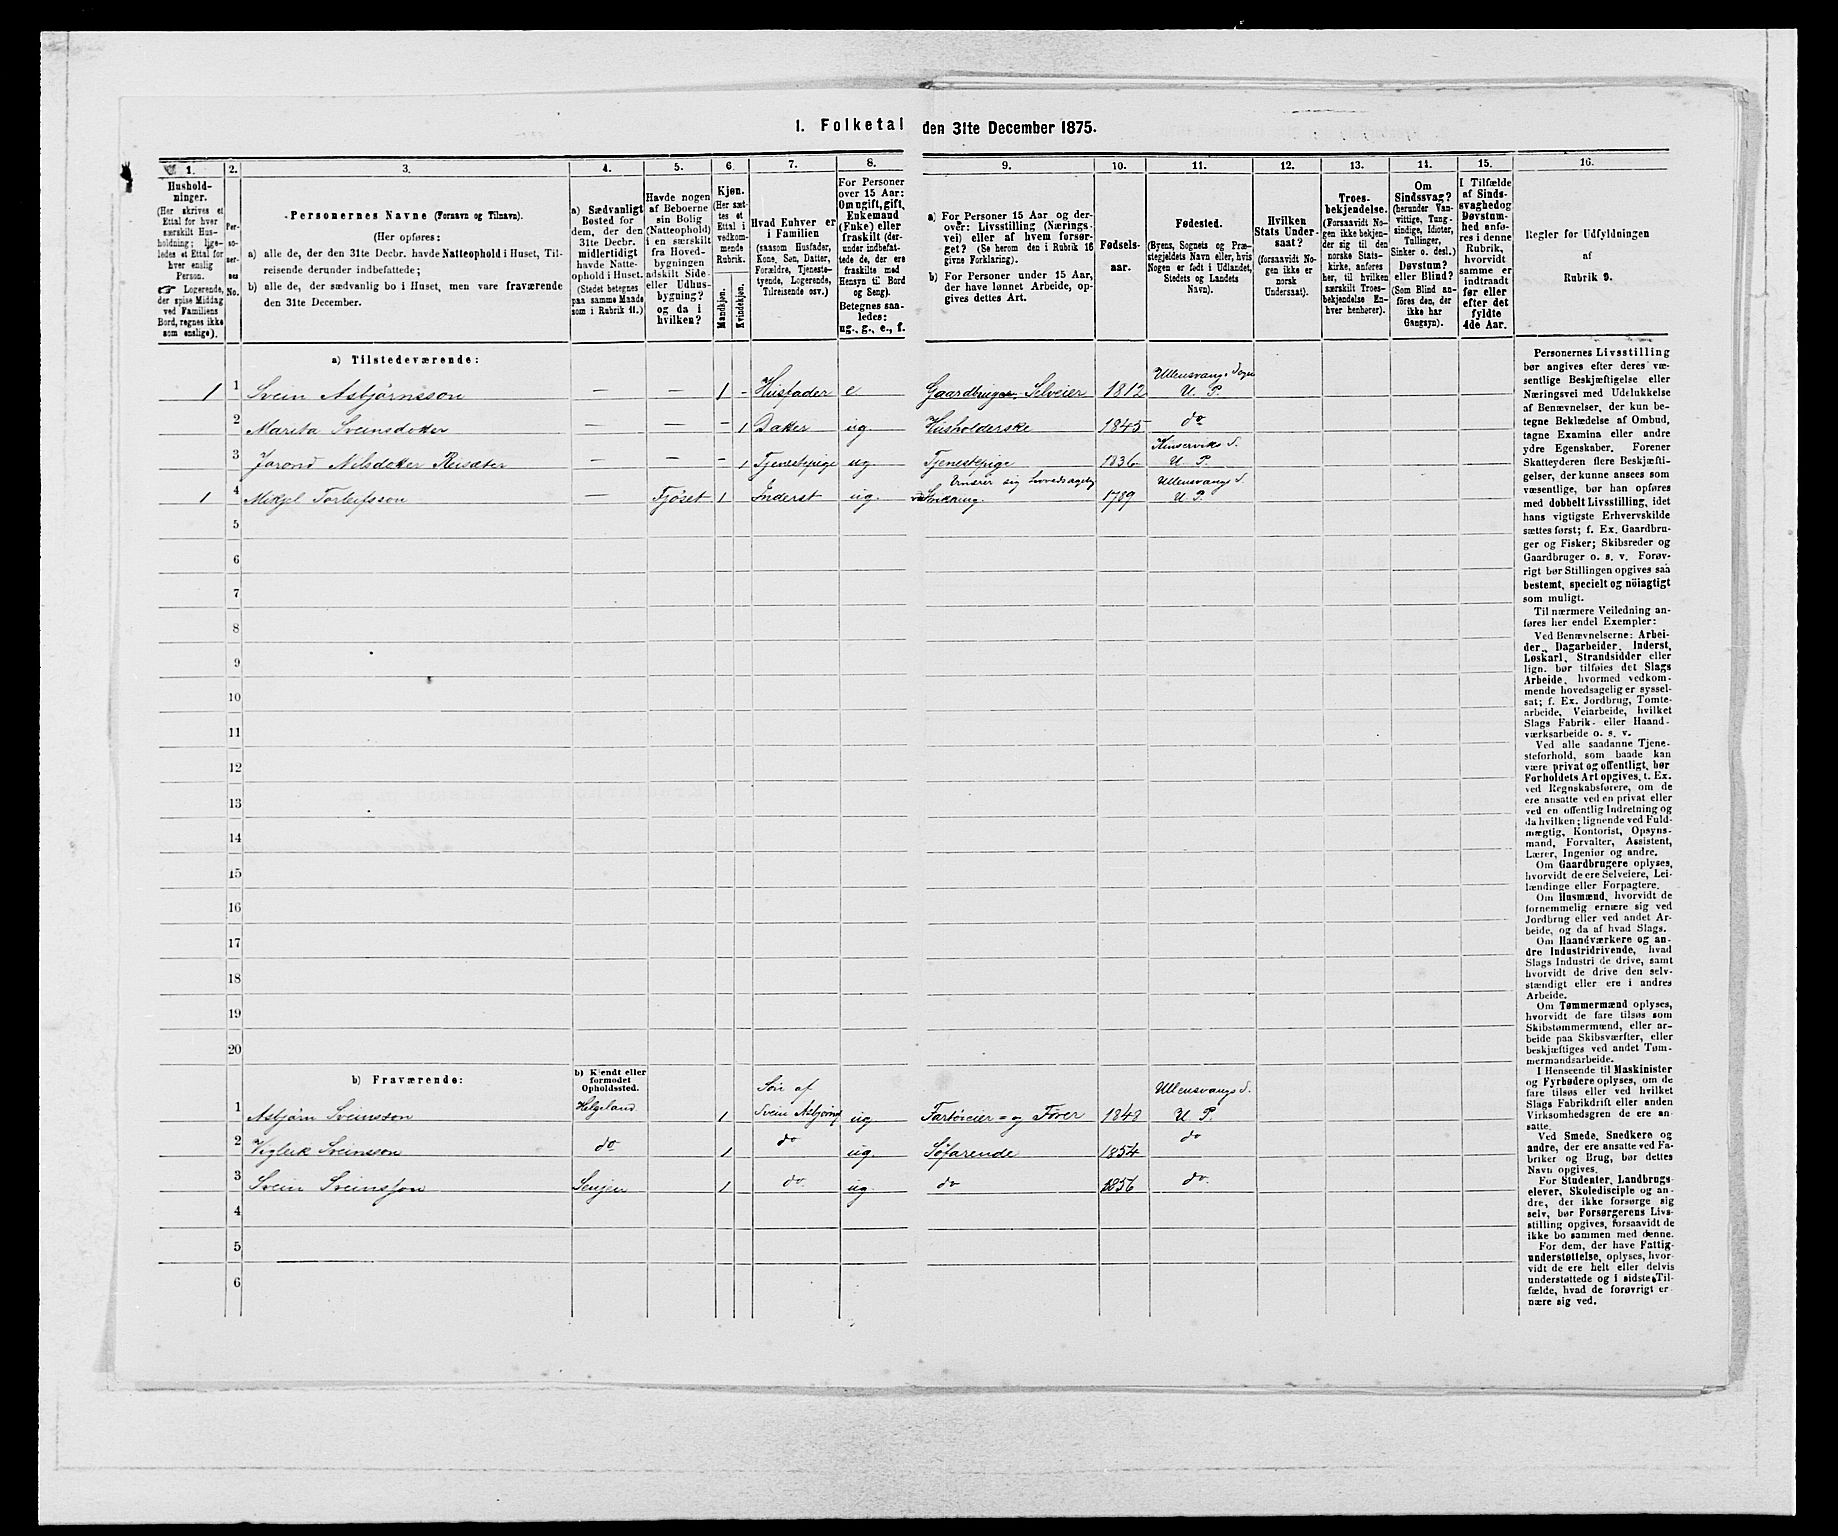 1. Folketal den 31te December 1875.
1.
Hushold-
ninger.
(Her skrives et
Ettal for hver
særskilt Hus-
holdning; lige-
ledes et Ettal for
hver enslig
Person.
☞ Logerende,
der spise Middag
ved Familiens
Bord, regnes ikke
som enslige).
2.
Per-
so-
ner-
nes
No.
3.
Personernes Navne (Fornavn og Tilnavn).
(Her opføres:
a) alle de, der den 31te Decbr. havde Natteophold i Huset, Til-
reisende derunder indbefattede;
b) alle de, der sædvanlig bo i Huset, men vare fraværende
den 31te December.
4.
a) Sædvanligt
Bosted for
dem, der den
31te Decbr.
midlertidigt
havde Natte-
ophold i Huset.
(Stedet betegnes
paa samme Maade
som i Rubrik 11.)
5.
Havde nogen
af Beboerne
sin Bolig
(Natteophold)
i en særskilt
fra Hoved-
bygningen
adskilt Side-
eller Udhus-
bygning?
og da i
hvilken?
6.
Kjøn.
(Her sæt-
tes et
Ettal i
vedkom-
mende
Rubrik.
Mandkjøn.
Kvindekjøn.
7.
Hvad Enhver er
i Familien
(saasom Husfader,
Kone, Søn, Datter,
Forældre, Tjeneste-
tyende, Logerende,
Tilreisende osv.)
8.
For Personer
over 15 Aar:
Om ugift, gift,
Enkemand
(Enke) eller
fraskilt (der-
under indbefat-
tede de, der ere
fraskilte med
Hensyn til Bord
og Seng).
Betegnes saa-
ledes:
ug., g., e., f.
9.
a) For Personer 15 Aar og der-
over: Livsstilling (Nærings-
vei) eller af hvem forsør-
get? (Se herom den i Rubrik 16
givne Forklaring).
b) For Personer under 15 Aar,
der have lønnet Arbeide, op-
gives dettes Art.
10.
Fødsels-
aar.
11.
Fødested.
(Byens, Sognets og Præ-
stegjeldets Navn eller, hvis
Nogen er født i Udlandet,
Stedets og Landets
Navn).
12.
Hvilken
Stats Under-
saat?
(forsaavidt No-
gen ikke er
norsk
Undersaat).
13.
Troes-
bekjendelse.
(Forsaavidt No-
gen ikke bekjen-
der sig til den
norske Stats-
kirke, anføres
her, til hvilken
særskilt Troes-
bekjendelse En-
hver henhører).
14.
Om
Sindssvag?
(herunder Van-
vittige, Tung-
sindige, Idioter,
Tullinger,
Sinker o. desl.)
Døvstum?
eller Blind?
(Som Blind an-
føres den, der
ikke har
Gangsyn).
15.
I Tilfælde
af Sinds-
svaghed og
Døvstum-
hed anfø-
res i denne
Rubrik,
hvorvidt
samme er
indtraadt
før eller
efter det
fyldte
4de Aar.
16.
Regler for Udfyldningen
af
Rubrik 9.
a) Tilstedeværende:
1 1 Svein Asbjørnsson — — 1 - Husfader e Gaardbruger, Selveier 1812 Ullensvangs Sogn U. P.
2 Marita Sveinsdoter — — — 1 Dater ug. Husholderske 1845 do
3 Jorond Nilsdotter Reisæter — — — 1 Tjenestepige ug Tjenestepige 1836 Kinserviks S. U. P.
1 4 Mikjel Torleifsson — Tjøset 1 Inderst ug. Ernærer sig hovedsagelig ved Snikring. 1789 Ullensvangs S. U. P.
5
6
7
8
9
10
11
12
13
14
15
16
17
18
19
20
b) Fraværende:
b) Kjendt eller
formodet
Opholdssted.
1 Asbjørn Sveinsson Helgeland 1 Søn af Svein Asbjørns ug Fartøieier- og Fører 1848 Ullensvangs S. U. P.
2 Vigleik Sveinsson do 1 do ug. Søfarende 1854 do
3 Svein Sveinsson Senjen 1 do ug. do 1856 do.
4
5
6
Personernes Livsstilling
bør angives efter deres væ-
sentlige Beskjæftigelse eller
Næringsvei med Udelukkelse
af Benævnelser, der kun be-
tegne Beklædelse af Ombud,
tagne Examina eller andre
ydre Egenskaber. Forener
Skatteyderen flere Beskjæfti-
gelser, der kunne ansees som
væsentlige, bør han opføres
med dobbelt Livsstilling, idet
hans vigtigste Erhvervskilde
sættes først; f. Ex. Gaardbru-
ger og Fisker; Skibsreder og
Gaardbruger o. s. v. Forøv-
rigt bør Stillingen opgives saa
bestemt, specielt og nöiagtigt
som muligt.
Til nærmere Veiledning an-
føres her endel Exempler:
Ved Benævnelserne: Arbei-
der, Dagarbeider, Inderst,
Løskarl, Strandsidder eller
lign. bør tilføies det Slags
Arbeide, hvormed vedkom-
mende hovedsagelig er syssel-
sat; f. Ex. Jordbrug, Tomte-
arbeide, Veiarbeide, hvilket
Slags Fabrik- eller Haand-
værksarbeide o. s. v.
Ved alle saadanne Tjene-
steforhold, som baade kan
være privat og offentligt, bør
Forholdets Art opgives, t. Ex.
ved Regnskabsførere, om de
ere ansatte ved en privat eller
ved en offentlig Indretning og
da hvilken; lignende ved Fuld-
mægtig, Kontorist, Opsyns-
mand, Forvalter, Assistent,
Lærer, Ingeniør og andre.
Om Gaardbrugere oplyses,
hvorvidt de ere Selveiere, Lei-
lændinge eller Forpagtere.
Om Husmænd, hvorvidt de
fornemmelig ernære sig ved
Jordbrug eller ved andet Ar-
beide, og da af hvad Slags.
Om Haandværkere og an-
dre Industridrivende, hvad
Slags Industri de drive, samt
hvorvidt de drive den selv-
stændigt eller ere i andres
Arbeide.
Om Tømmermænd oplyses,
hvorvidt de fare tilsøs som
Skibstømmermænd, eller ar-
beide paa Skibsværfter, eller
beskjæftiges ved andet Tøm-
mermandsarbeide.
I Henseende til Maskinister
og Fyrbødere oplyses, om de
fare tilsøs eller ved hvilket
Slags Fabrikdrift eller anden
Virksomhedsgren de ere an-
satte.
Ved Smede, Snedkere og
andre, der ere ansatte ved Fa-
briker og Brug, bør dettes
Navn opgives.
For Studenter, Landbrugs-
elever, Skoledisciple og an-
dre, der ikke forsørge sig
selv, bør Forsørgerens Livs-
stilling opgives, forsaavidt de
ikke bo sammen med denne.
For dem, der have Fattig-
understøttelse, oplyses, hvor-
vidt de ere helt eller delvis
understøttede og i sidste Til-
fælde, hvad de forøvrigt er-
nære sig ved.